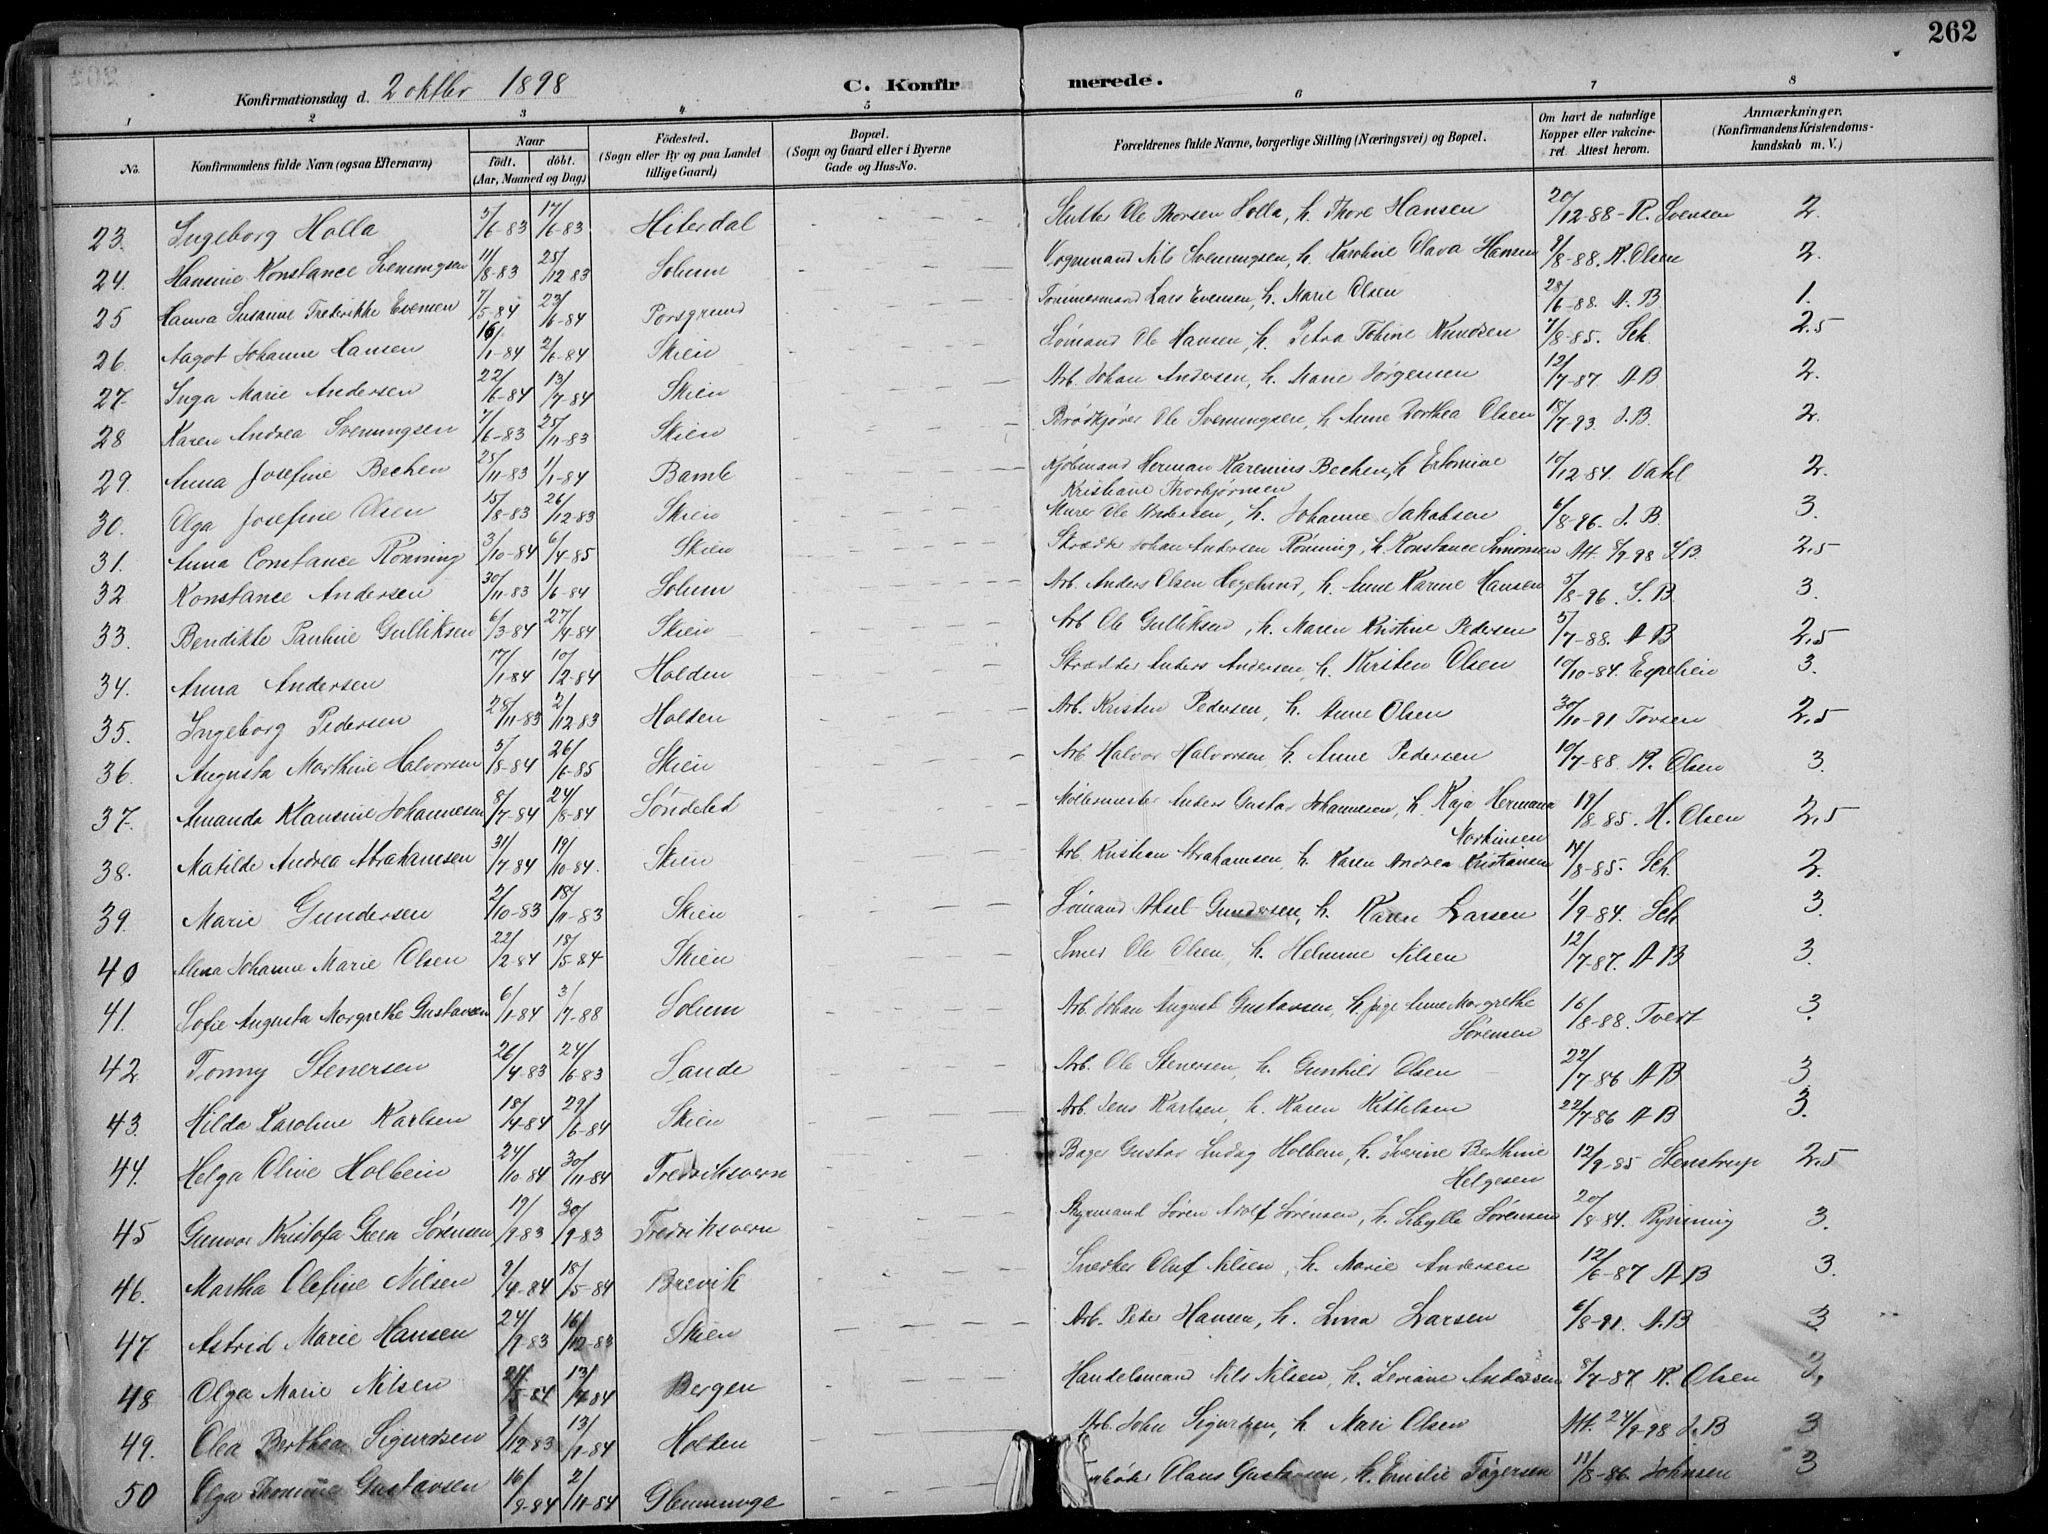 262
Konfirmationsdag d. 2 oktbr 1898
C. Konfirmerede.
1 2 3 4 5 6 7 8
No. Konfirmandens fulde Navn (ogsaa Efternavn) Naar født. døbt. (Aar, Maaned og Dag) Fødested. (Sogn eller By og paa Landet tillige Gaard) Bopæl. (Sogn og Gaard eller i Byerne Gade og Hus-No. Forældrenes fulde Navne, borgerlige Stilling (Næringsvei) og Bopæl. Om havt de naturlige Kopper eller vakcineret. Attest herom. Anmærkninger. (Konfirmandens Kristendomskundskab m. V.)
23. Ingeborg Holla 5/6-83 17/6-83 Hiterdal Ole Thorsen Holla, h. Thore Hansen 20/12-88 R. Svensen 2.
24. Hansine Konstance Svenningsen 11/8-83 25/12-83 Solum Vognmand Nils Svenningsen, h. Karoline Olava Hansen 2/8-88. R. Olsen 2.
25 Hanna Susanne Frederikke Evensen 7/5-84 23/6-84 Porsgrund Tømmermand Lars Evensen, h. Marie Olsen 28/6-88. A. B 1.
26. Aagot Johanne Hansen 16/1-84 2/6-84 Skien Sømand Ole Hansen, h. Petra Tobine Knudsen 7/8-85. Sch. 2.5
27. Inga Marie Andersen 22/6-84 13/7-84 Skien Arb. Johan Andersen, h. Marie Jørgensen 12/7-87. A B 2.
28 Karen Andrea Svenningsen 7/6-83 25/11-83 Skien Brødkjører Ole Svenningsen, h. Anne Dorthea Olsen 18/7-93. J. B. 2.
29. Anna Josefine Bechen 25/11-83 1/1-84 Bamle Kjøbmand Herman Karenius Bechen, h.
Kristiane Thorbjørnsen 10/12-84. Vahl 2.
30. Olga Josefine Olsen 15/8-83 26/12-83 Skien Murer Ole Andersen, h. Johanne Jakobsen 6/8-96. J. B. 3.
31. Anna Constance Rønning 3/10-84 6/4-85 Skien Skrædder Johan Andersen Rønning, h. Konstance Simonsen Att. 8/9-98 J. B. 2,5
32 Konstance Andersen 30/11-83 1/6-84 Solum Arb. Anders Olsen Hegelund, h. Anne Karine Hansen 5/8-96. J. B. 3.
33. Bendikte Pauline Gulliksen 6/3-84 27/4-84 Skien Arb. Ole Gulliksen, h. Maren Kristine Pedersen 5/7-88. A B 2,5
34. Anna Andersen 17/1-84 10/2-84 Holden Skrædder Anders Andersen, h. Kirsten Olsen 10/10-84. 3.
35. Ingeborg Pedersen 28/11-83 2/12-83 Holden Arb. Kristen Pedersen, h. Anne Olsen 30/10-91 Tovsen 2,5
36. Augusta Marthine Halvorsen 5/8-84 26/6-85 Skien Arb. Halvor Halvorsen h. Anne Pedersen 10/7-88. R. Olsen 3.
37. Amanda Klausine Johannesen 8/7-84 24/8-84 Søndeled Møllermester Anders Gustav Johannesen, h. Kaja Hermana
Martinsen 19/8-85. H. Olsen 2,5
38. Matilde Andrea Abrahamsen 31/7-84 19/10-84. Skien Arb. Kristian Abrahamsen, h. Karen Andrea Kristiansen 14/8-85. Sch. 2.
39. Marie Gundersen 2/10-83 18/11-83 Skien Sømand Aksel Gundersen, h. Karen Larsen 1/9-84. Sch 3.
40 Johanne Marie Olsen 22/2-84 18/5-84 Skien Smed Ole Olsen, h. Helmine Nilsen 12/7-87. A B 3.
41. Sofie Augusta Margrethe Gustavsen 6/1-84 3/7-88 Solum Arb. Johan August Gustavsen, h. pige Anne Margrethe
Sørensen 16/8-88. Tvedt 3.
42. Tonny Stenersen 26/4-83 24/6-83 Sande Arb. Ole Stenersen, h. Gunhild Olsen 22/7-86 A B 3
43. Hilda Karoline Karlsen 18/4-84 29/6-84 Skien Arb. Jens Karlsen, h. Karen Kittelsen 22/7-86 A B 3.
44. Helga Olive Holbein 24/10-84 30/11-84 Fredriksvern Bager Gustav Ludvig Holbein, h. Severine Berthine
Helgesen 12/9-85 Stenstrup 2,5
45 Gunvor Kristofa Sørensen 19/9-83 30/9-83 Fredriksvern Styrmand Søren Adolf Sørensen, h. Sibylle Sørensen 20/8-84. Rynning 3.
46. Martha Olefine Nilsen 2/4-84 18/5-84 Brevik Snedker Oluf Nilsen, h. Marie Andersen 12/6-87 A B 3.
47 Astrid Marie Hansen 24/9-83 16/12-83 Skien Arb. Peder Hansen, h. Lina Larsen 6/8-91. A. B 3.
48 Olga Marie Nilsen 13/7-84 Bergen Handelsmand Nils Nilsen, h. Andersen 8/7-87 R. Olsen 3,
49. Olea Berthea Sigurdsen 2/12-83 13/1-84 Holden Arb. John Sigurdsen, h. Mari Olsen Att. 24/9-98 J. B 3
50 Olga Gustavsen 16/9-84 2/11-84 Glemminge Olaus Gustavsen, h. Emilie 11/8-86. Johnsen 3